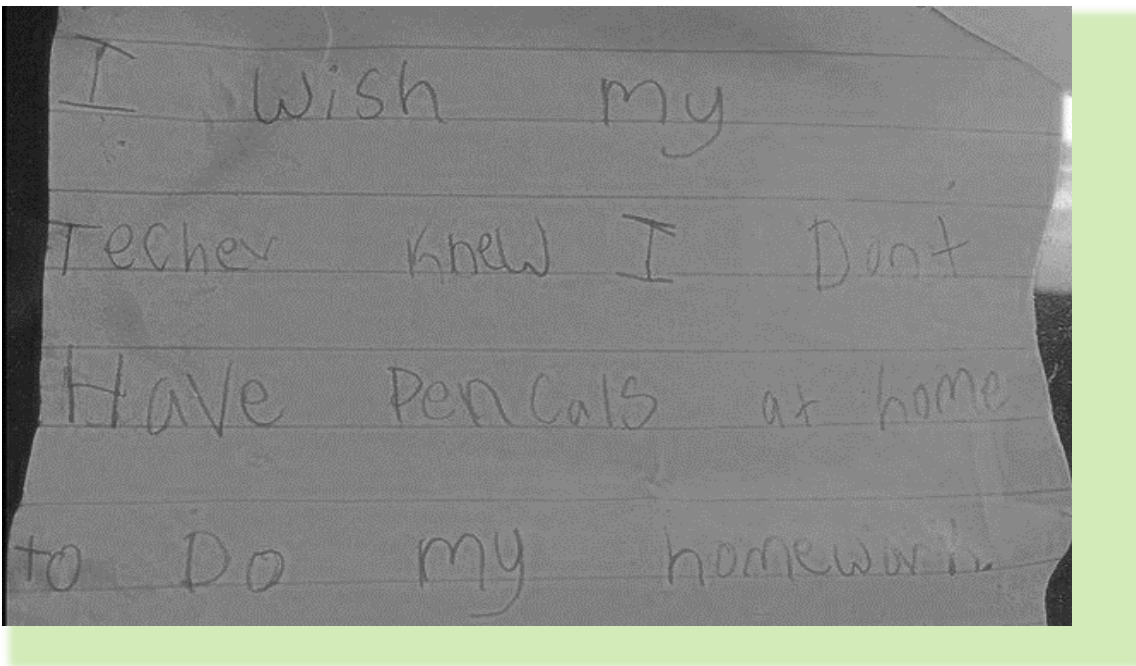 I wish my
Techer Knew I Dont
Have Pencals at home
to Do my homework